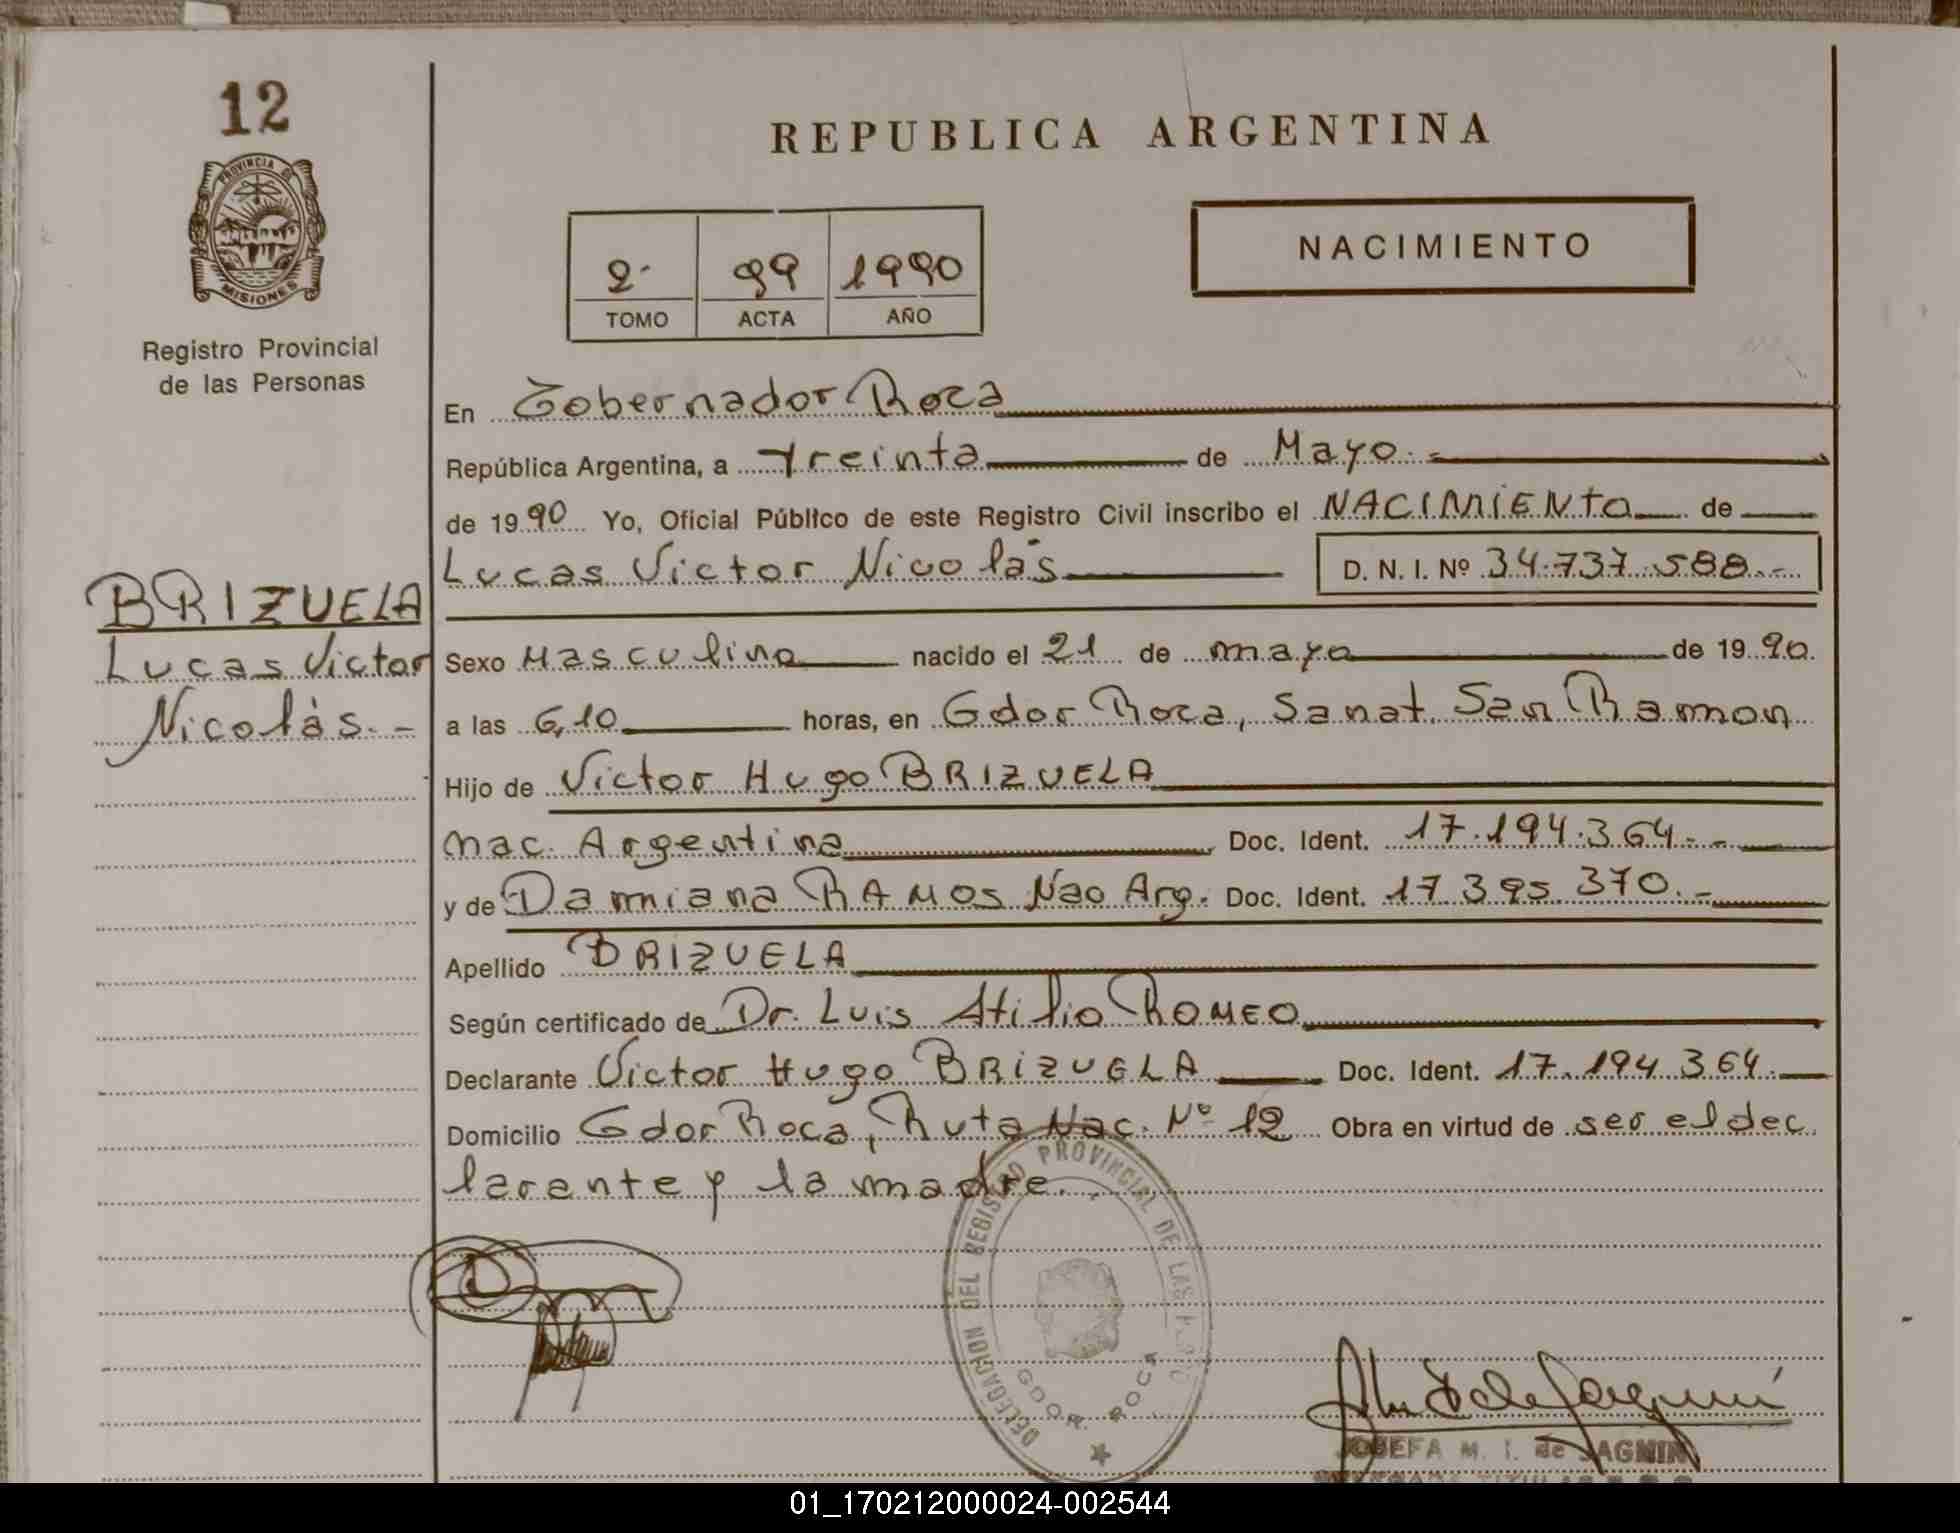 12
PROVINCIA DE
MISIONES
Registro Provincial
de las Personas
BRIZUELA
Lucas Victor
Nicolás.-
REPUBLICA ARGENTINA
NACIMIENTO
2· 99 1990
TOMO ACTA AÑO
En Gobernador Roca
República Argentina, a treinta de Mayo.-
de 1990 Yo, Oficial Público de este Registro Civil inscribo el NACIMIENTO de
Lucas Victor Nicolás D. N. I. Nº 34.737.588.-
Sexo Masculino nacido el 21 de mayo de 1990.
a las 6,10 horas, en Gdor Roca, Sanat. San Ramon
Hijo de Victor Hugo BRIZUELA
nac. Argentina Doc. Ident. 17.194.364.-
y de Damiana RAMOS Nac Arg. Doc. Ident. 17 395.370.-
Apellido BRIZUELA
Según certificado de Dr. Luis Atilio ROMEO
Declarante Victor Hugo BRIZUELA Doc. Ident. 17.194.364.
Domicilio Gdor Roca, Ruta Nac. Nº 12 Obra en virtud de ser el dec
larante y la madre.
DELEGACION DEL REGISTRO PROVINCIAL DE LAS
GDOR. ROCA
JOSEFA M. I. de SAGNIN
01_170212000024-002544